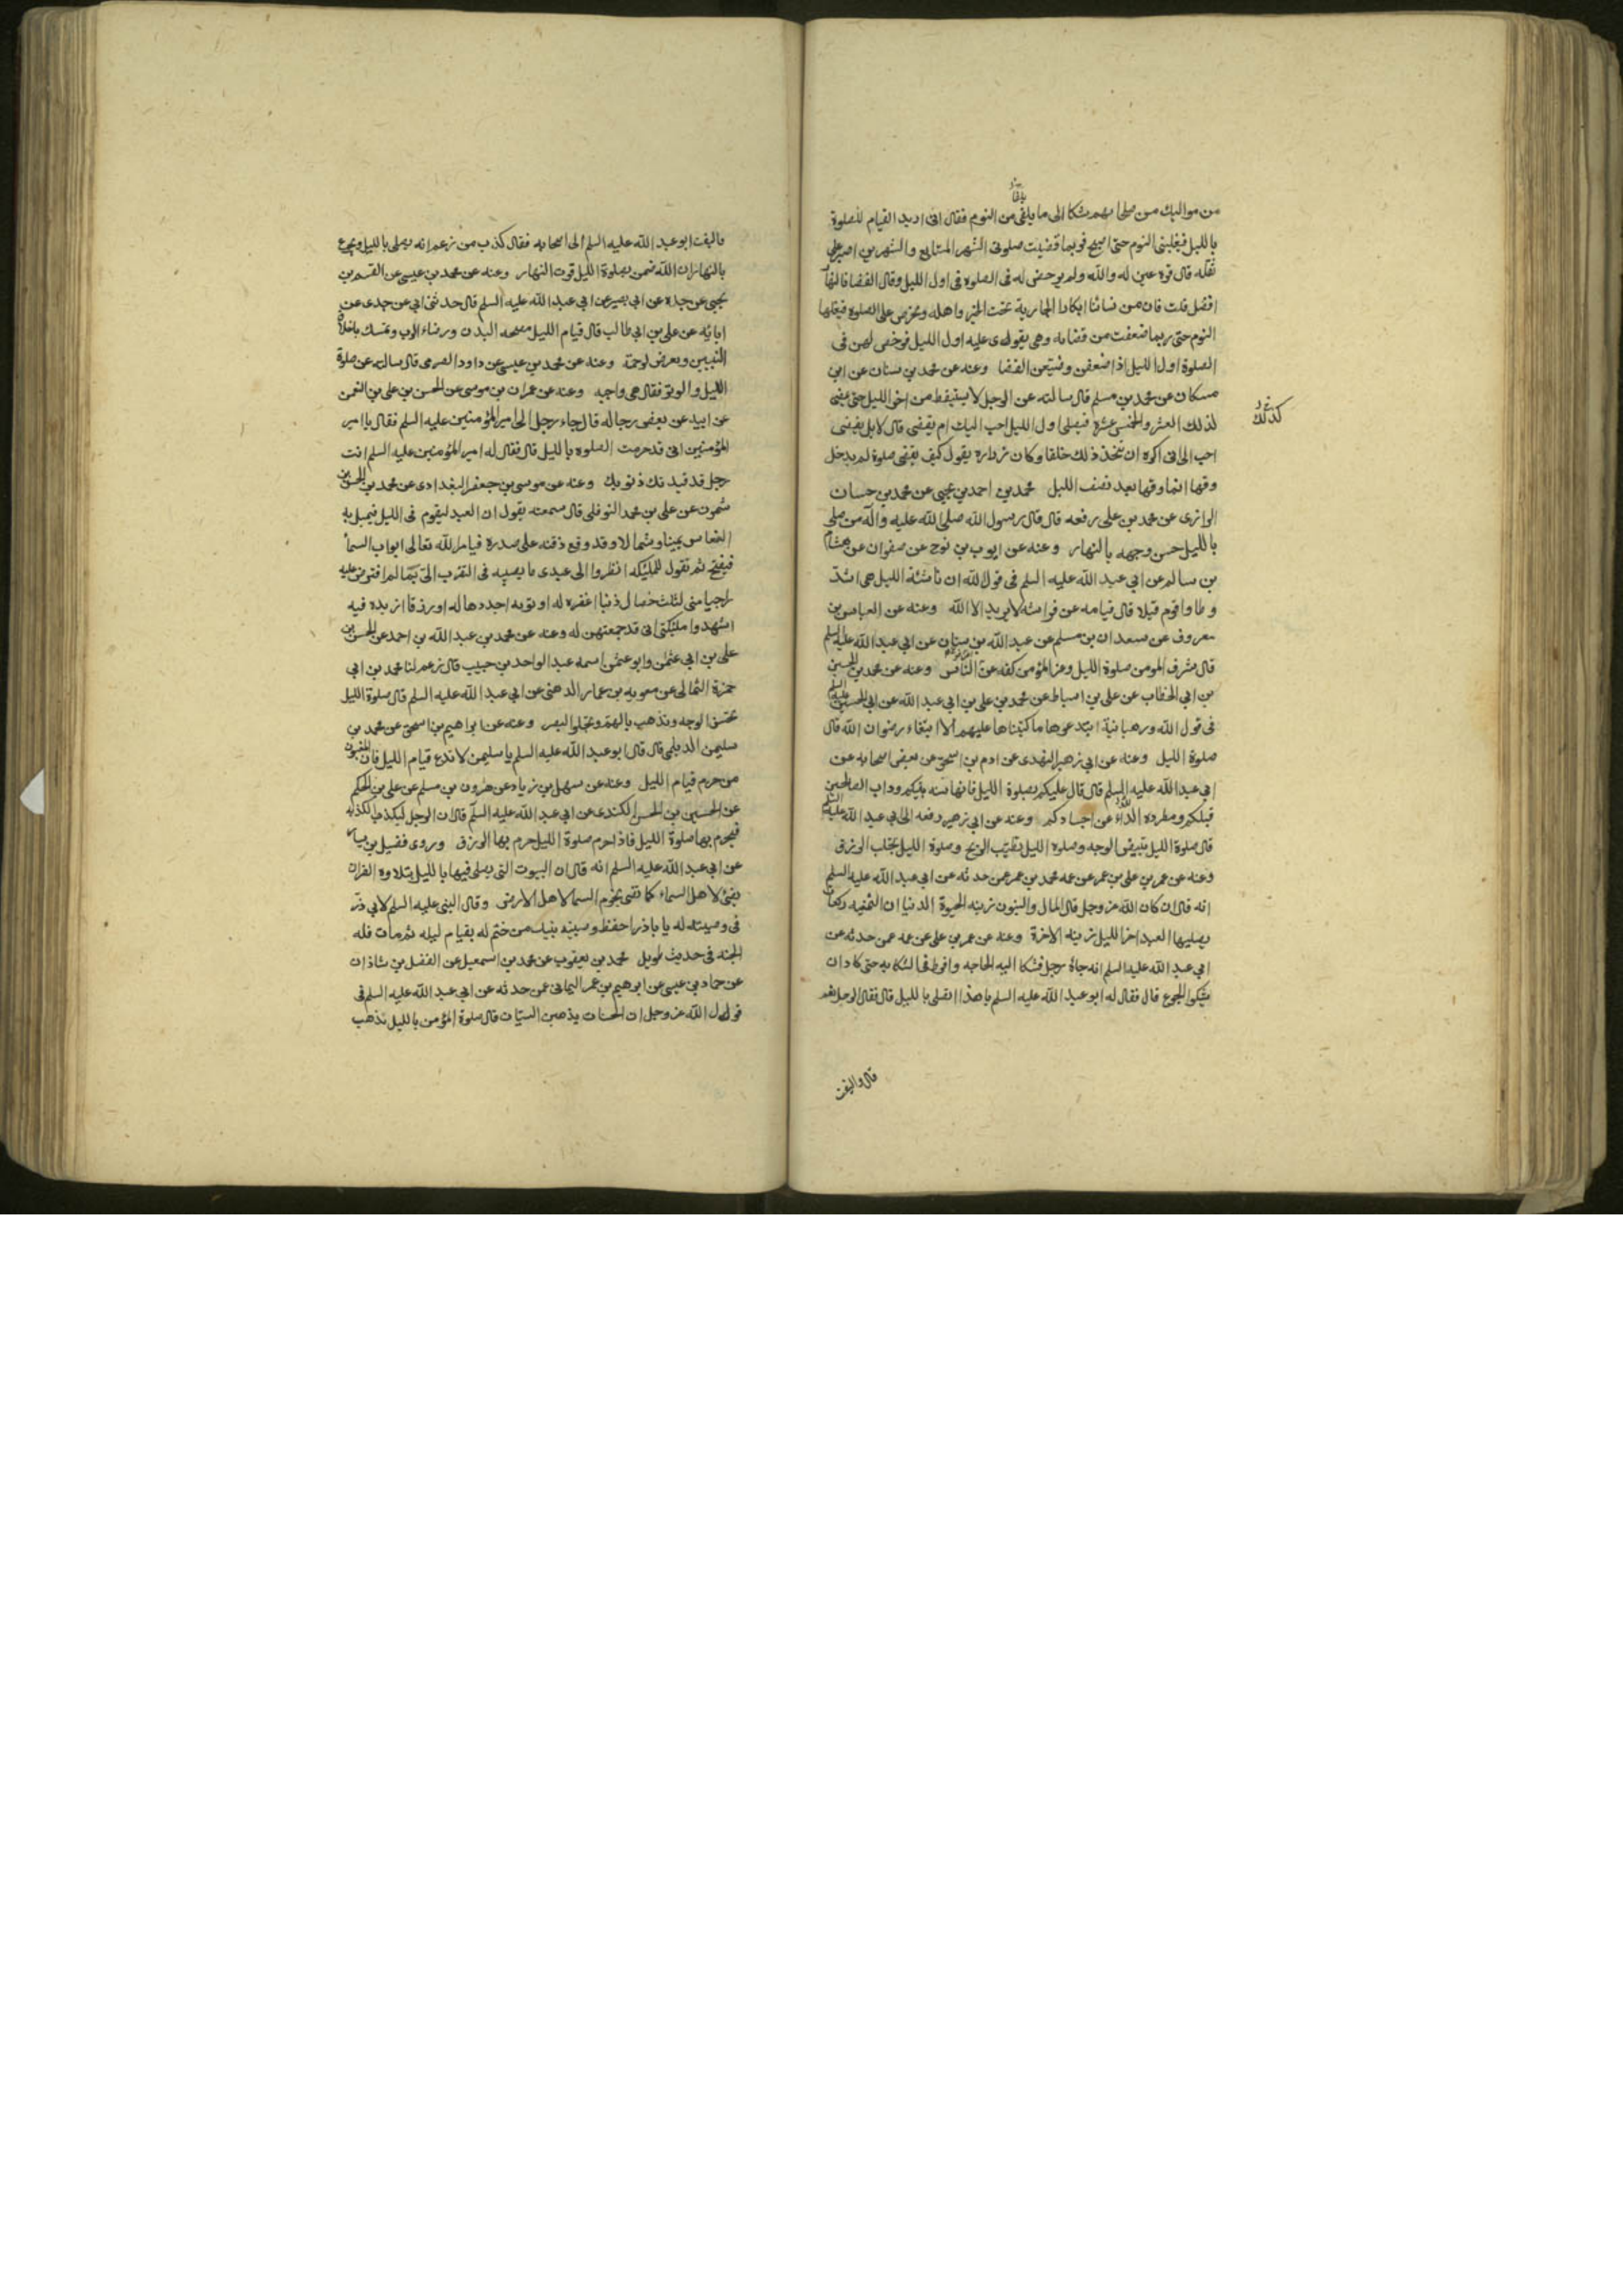 من مواليك من صلحائهم شكا الى ما يلقى من النوم فقال انى اريد القيام للصلوة
بالليل فيغلبنى النوم حتى اصبح فربما قضيت صلوتى الشهر المتتابع والشهرين اصبر على
ثقله قال قرة عين له والله ولم يرخص له فى الصلوة فى اول الليل وقال القضا بالنهار
افضل قلت فان من نسائنا ابكارا الجارية تحب الخير واهله وتحرص على الصلوة فيغلبها
النوم حتى ربما ضعفت من قضائه وهى تقوى عليه اول الليل فرخص لهن فى
الصلوة اول الليل اذا ضعفن وضيعن القضا وعنه عن محمد بن سنان عن ابن
مسكان عن محمد بن مسلم قال سالته عن الرجل لا يستيقظ من اخر الليل حتى يمضى
كذلك
لذلك العشر والخمس عشرة فيصلى اول الليل احب اليك ام يقضى قال لا بل يقضى
احب الى انى اكره ان يتخذ ذلك خلقا وكان زراره يقول كيف يقضى صلوة لم يدخل
وقتها انما وقتها بعد نصف الليل محمد بن احمد بن يحيى عن محمد بن حسان
الرازى عن محمد بن على رفعه قال قال رسول الله صلى الله عليه واله من صلى
بالليل حسن وجهه بالنهار وعنه عن ايوب بن نوح عن صفوان عن هشام
بن سالم عن ابى عبد الله عليه السلم فى قول الله ان ناشئة الليل هى اشد
وطا واقوم قيلا قال قيامه عن فراشه لا يريد الا الله وعنه عن العباس بن
معروف عن سعدان بن مسلم عن عبد الله بن سنان عن ابى عبد الله عليه السلم
قال شرف المومن صلوة الليل وعز المؤمن كفه عن الناس وعنه عن محمد بن الحسين
بن ابى الخطاب عن على بن اسباط عن محمد بن على بن ابى عبد الله عن ابى الحسن عليه السلم
فى قول الله ورهبانية ابتدعوها ما كتبناها عليهم الا ابتغاء رضوان الله قال
صلوة الليل وعنه عن ابى زهير النهدى عن ادم بن اسحق عن بعض اصحابه عن
ابى عبد الله عليه السلم قال قال عليكم بصلوة الليل فانها سنه نبيكم وداب الصالحين
قبلكم ومطردة الداء عن اجسادكم وعنه عن ابى زهير رفعه الى ابى عبد الله عليه السلم
قال صلوة الليل تبيض الوجه وصلوه الليل تطيب الريح وصلوة الليل تجلب الرزق
وعنه عن عمر بن على بن عمر عن عمه محمد بن عمر عمن حدثه عن ابى عبد الله عليه السلم
انه قال ان كان الله عز وجل قال المال والبنون زينه الحيوة الدنيا ان الثمنيه ركعات
يصليها العبد اخر الليل زينه الاخرة وعنه عن عمر بن على عن عمه عمن حدثه عن
ابى عبد الله عليه السلم انه جاءه رجل فشكا اليه الحاجه وافرط فى الشكايه حتى كاد ان
يشكو الجوع قال فقال له ابو عبد الله عليه السلم يا هذا اتصلى بالليل قال فقال الرجل نعم
قال والتفت
فالتفت ابو عبد الله عليه السلم الى اصحابه فقال كذب من زعم انه يصلى بالليل ويجوع
بالنهار ان الله ضمن بصلوة الليل قوت النهار وعنه عن محمد بن عيسى عن القسم بن
يحيى عن جده عن ابى بصير عن ابى عبد الله عليه السلم قال حدثنى ابى عن جدى عن
ابائه عن على بن ابى طالب قال قيام الليل مصحه البدن ورضاء الرب وتمسك باخلاق
النبيين وتعرض لرحمته وعنه عن محمد بن عيسى عن داود الصرمى قال سالته عن صلوة
الليل والوتر فقال هى واجبه وعنه عن عمران بن موسى عن الحسن بن على بن النعمن
عن ابيه عن بعض رجاله قال جاء رجل الى امير المؤمنين عليه السلم فقال يا امير
المؤمنين انى قد حرمت الصلوه بالليل قال فقال له امير المؤمنين عليه السلم انت
رجل قد قيدتك ذنوبك وعنه عن موسى بن جعفر البغدادى عن محمد بن الحسن بن
شمون عن على بن محمد النوفلى قال سمعته يقول ان العبد ليقوم فى الليل فيميل به
النعاس يمينا وشمالا وقد وقع ذقنه على صدره فيامر الله تعالى ابواب السماء
فيفتح ثم يقول للملئكه انظروا الى عبدى ما يصيبه فى التقرب الى بما لم افترض عليه
راجيا منى لثلث خصال ذنبا اغفره له او توبه اجددها له او رزقا ازيده فيه
اشهدوا ملئكتى انى قد جمعتهن له وعنه عن محمد بن عبد الله بن احمد عن الحسن بن
على بن ابى عثمن وابو عثمن اسمه عبد الواحد بن حبيب قال زعم لنا محمد بن ابى
حمزة الثمالى عن معويه بن عمار الدهنى عن ابى عبد الله عليه السلم قال صلوة الليل
تحسن الوجه وتذهب بالهم وتجلو البصر وعنه عن ابراهيم بن اسحق عن محمد بن
سليمن الديلمى قال قال ابو عبد الله عليه السلم يا سليمن لا تدع قيام الليل فان المغبون
من حرم قيام الليل وعنه عن سهل بن زياد عن هرون بن مسلم عن على بن الحكم
عن الحسين بن الحسن الكندى عن ابى عبد الله عليه السلم قال ان الرجل ليكذب الكذبه
فيحرم بها صلوة الليل فاذا حرم صلوة الليل حرم بها الرزق وروى فضيل بن يسار
عن ابى عبد الله عليه السلم انه قال ان البيوت التى يصلى فيها بالليل بتلاوه القران
تضئ لاهل السماء كما تضئ نجوم السما لاهل الارض وقال النبى عليه السلم لابى ذر
فى وصيته له يا باذر احفظ وصيه نبيك من ختم له بقيام ليله ثم مات فله
الجنه فى حديث طويل محمد بن يعقوب عن محمد بن اسمعيل عن الفضل بن شاذان
عن حماد بن عيسى عن ابرهيم بن عمر اليمانى عمن حدثه عن ابى عبد الله عليه السلم فى
قول الله عز وجل ان الحسنات يذهبن السيئات قال صلوة المؤمن بالليل تذهب